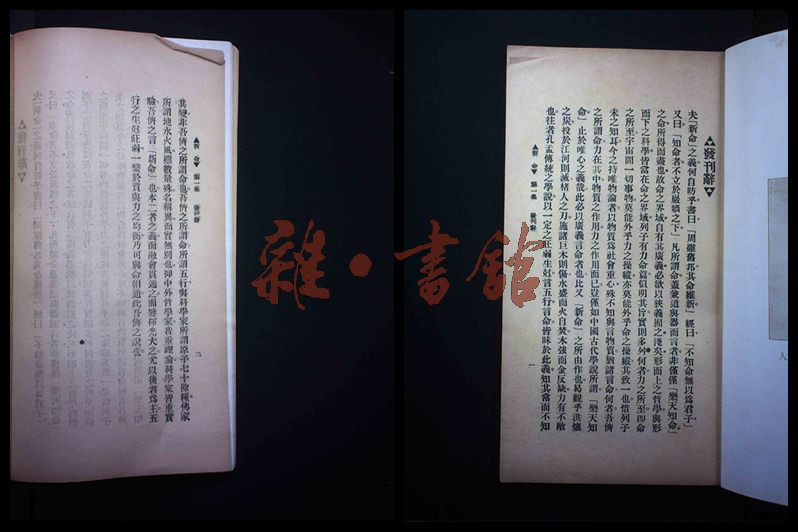 發刊辭
夫「新命」之義何自昉乎書曰「周雖舊邦其命維新」經曰「不知命無以爲君子」
又曰「知命者不立於巖牆之下」凡所謂命蓋兼道與器而言者非僅僅「樂天知命」
之命所得而盡也故命之界域自有其廣義必欲以狹義囿之淺矣形而上之哲學與形
而下之科學皆當在命之界域列子有力命篇惜明其旨實則多舛何者力之所至即命
之所至宇宙間一切事物莫能外乎力之操縱亦莫能外乎命之操縱其致一也惜列子
未之知耳今之持唯物論者以物質爲社會重心殊不知與言物質猶諸言命何者吾儕
之所謂命力在其中物質之作用力之作用而已豈僅如中國古代學說所謂「樂天知
命」止於唯心之義哉此必以廣義言命者也比又「新命」之所由作也曷觀乎洪爐
之炭投於江河則滅楮人之刀施諸巨木則傷水盛而火自焚木強而金反缺力有不敵
也往者孔孟傳統之學說以一定之旺弱生尅言五行言命皆昧於此義知其常而不知
新命 第一集 發刊辭
一
其變非吾儕之所謂命也吾儕之所謂命所謂五行與科學家所謂原子七十餘種佛家
所謂地水火風雖數量殊名稱異而實無別也抑中外哲學家皆重理論科學家皆重實
驗吾儕之言「新命」也本二者之義而融會貫通之而發揮光大之尤以後者爲主五
行之生尅旺弱一繫於質與力之均衡乃可與命相通此吾儕之說也
新命 第一集 發刊辭
二
雜·書館
人